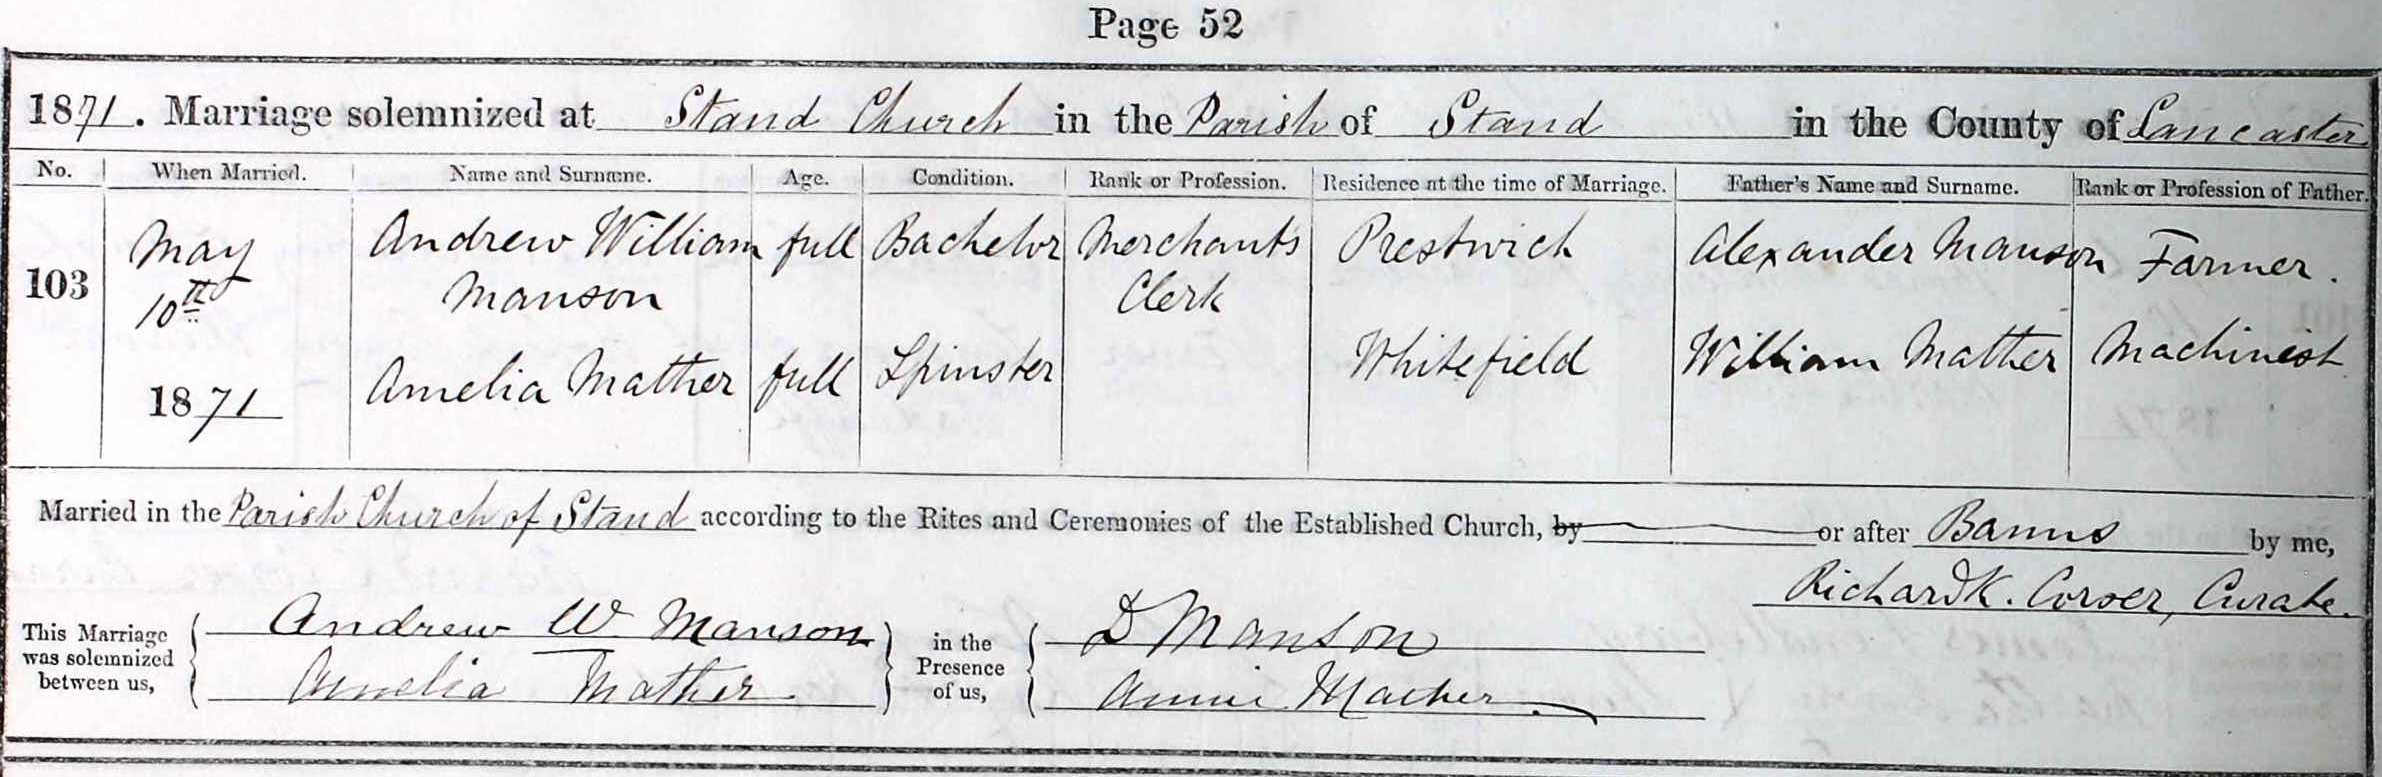 Page 52
1871. Marriage solemnized at Stand Church in the Parish of Stand in the County of Lancaster
No. When Married. Name and Surname. Age. Condition. Rank or Profession. Residence at the time of Marriage. Father's Name and Surname. Rank or Profession of Father.
103 May 10th 1871
Andrew William Manson full Bachelor Merchants Clerk Prestwich Alexander Manson Farmer.
Amelia Mather full Spinster Whitefield William Mather Machinist
Married in the Parish Church of Stand according to the Rites and Ceremonies of the Established Church, by or after Banns by me,
Richard K. Corser, Curate.
This Marriage was solemnized between us, Andrew W. Manson
Amelia Mather.
in the Presence of us, D Manson
Annie Mather.